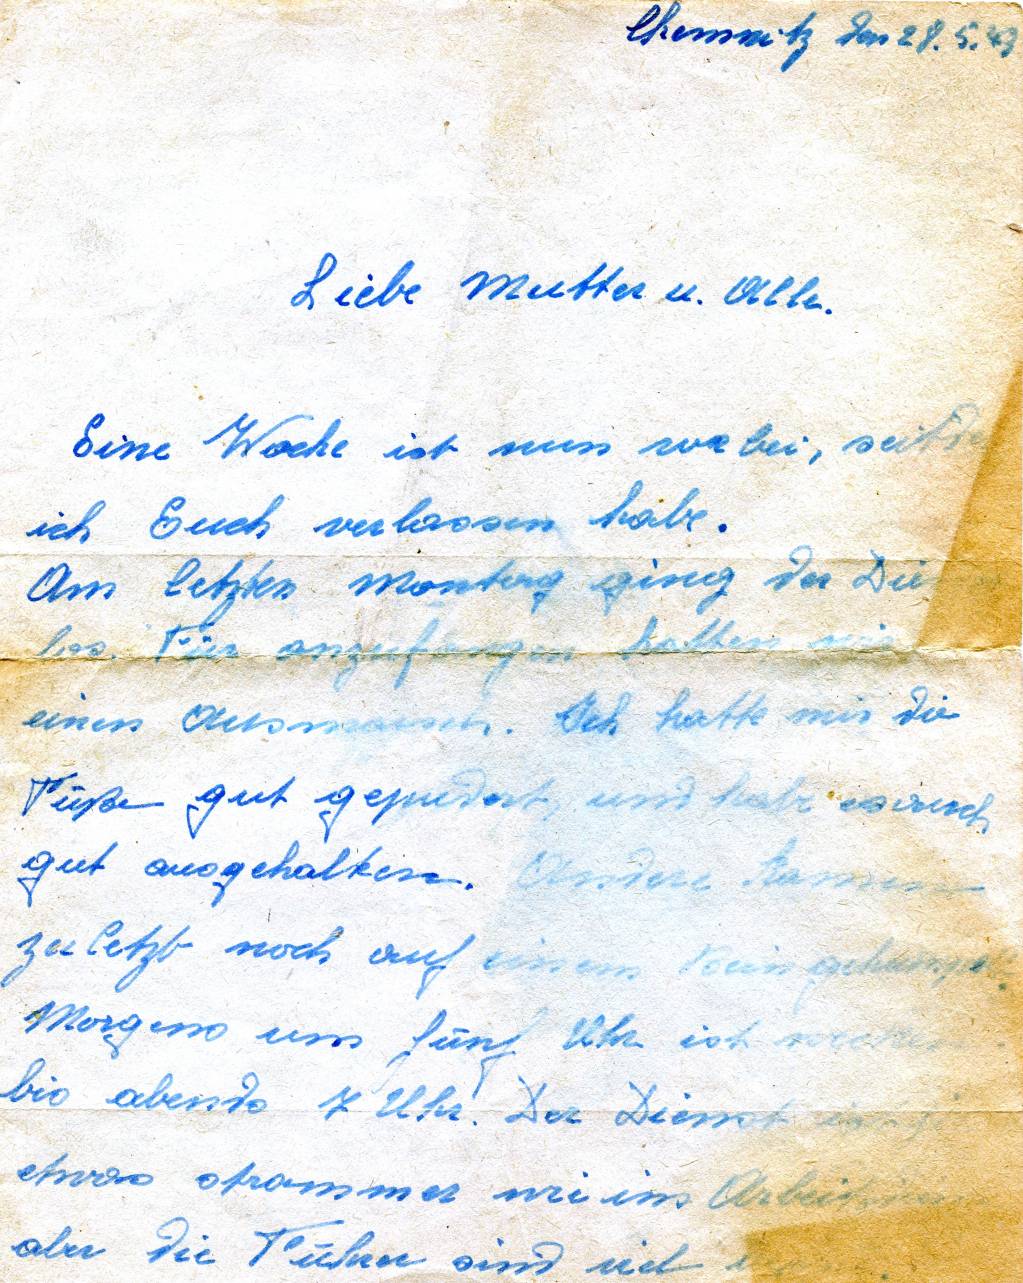 Chemnitz den 28. 5. 43
Liebe Mutter u. Alle.
Eine Woche ist nun vorbei, seitde
ich Euch verlassen habe.
Am letzten Montag ging der Die
los. Für anzufangen hatten wir
einen Ausmarsch. Ich hatte mir die
Füße gut gepudert, und habe es auch
gut ausgehalten. Andere kamen
zuletzt noch auf einem Bein gehumpelt.
Morgens um fünf Uhr ist wecken
bis abends 7 Uhr. Der Dienst
etwas strammer wie im
aber die Führer sind viel